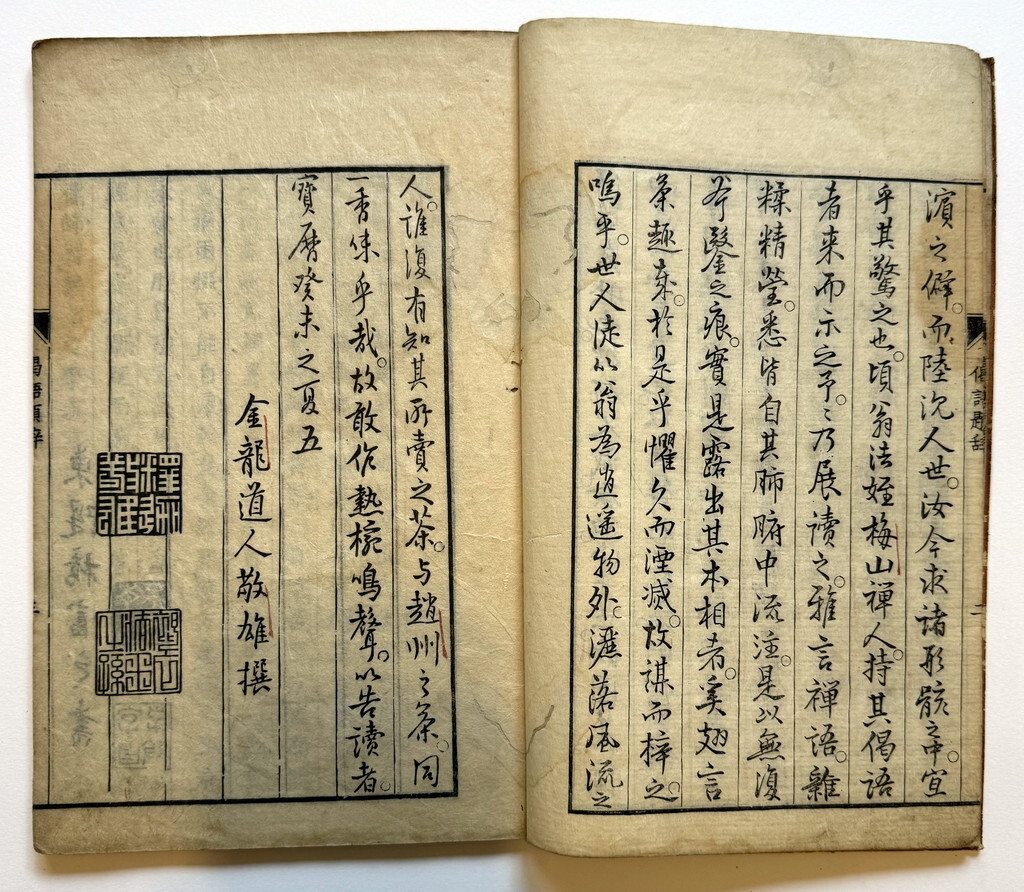 濱之僻。而陸沉人世。汝今求諸形骸之中。宜
乎其驚之也。頃翁法姪梅山禪人。持其偈語
者来而示之予。〻乃展讀之。雅言禪語。雜
糅精瑩。悉皆自其肺腑中流注。是以無復
斧鑿之痕。實是露出其本相者。奚翅言
茶趣乘。於是乎懼久而湮滅。故謀而梓之。
嗚乎。世人徒以翁為逍遥物外。灑落風流之
偈語題辞
二
人。誰復有知其所賣之茶。与趙州之茶。同
一香味乎哉。故敢作熱椀鳴聲。以告讀者。
寶曆癸未之夏五
金龍道人敬雄撰
釋敬雄